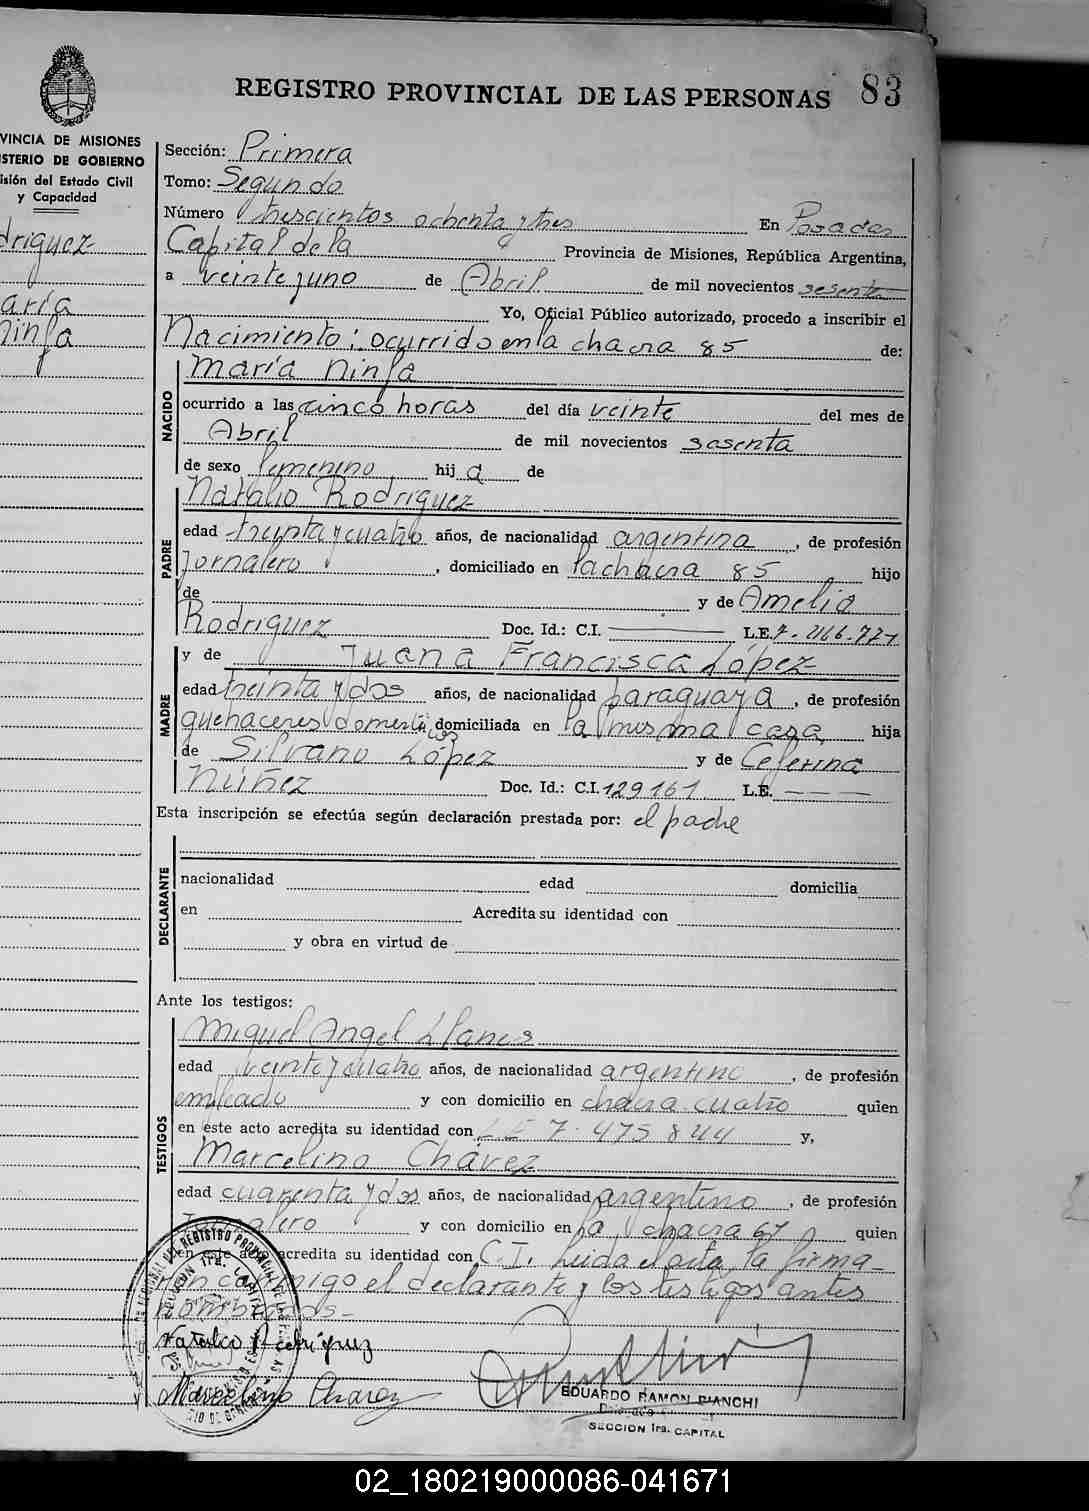 REGISTRO PROVINCIAL DE LAS PERSONAS 83
VINCIA DE MISIONES
STERIO DE GOBIERNO
isión del Estado Civil
y Capacidad
driguez
aría
ninfa
Sección: Primera
Tomo: Segundo
Número trescientos ochenta y tres En Posadas
Capital de la Provincia de Misiones, República Argentina,
a veinte y uno de Abril de mil novecientos sesenta
Yo, Oficial Público autorizado, procedo a inscribir el
Nacimiento: ocurrido en la chacra 85 de:
NACIDO
María Ninfa
ocurrido a las cinco horas del día veinte del mes de
Abril de mil novecientos sesenta
de sexo femenino hij a de
PADRE
Natalio Rodriguez
edad treinta y cuatro años, de nacionalidad argentina, de profesión
Jornalero, domiciliado en la chacra 85 hijo
de y de Amelia
Rodriguez Doc. Id.: C.I. L.E. 7.
MADRE
y de Juana Francisca López
edad treinta y dos años, de nacionalidad paraguaya, de profesión
quehaceres domesticos domiciliada en la misma casa, hija
de Silvano López y de Ceferina
Núñez Doc. Id.: C.I. 129161 L.E. ---
Esta inscripción se efectúa según declaración prestada por: el padre
DECLARANTE
nacionalidad edad domicilia
en Acredita su identidad con
y obra en virtud de
Ante los testigos:
TESTIGOS
Miguel Angel Llanes
edad veinte y cuatro años, de nacionalidad argentino, de profesión
empleado y con domicilio en chacra cuatro quien
en este acto acredita su identidad con L.E 7.475844 y,
Marcelino Chávez
edad cuarenta y dos años, de nacionalidad argentino, de profesión
Jornalero y con domicilio en la chacra 67 quien
en este acto acredita su identidad con C.I. Leida el acta, la firma-
ron conmigo el declarante y los testigos antes
nombrados-
Natalio Rodriguez
Marcelino Chavez
EDUARDO RAMON BIANCHI
SECCION 1ra. CAPITAL
02_180219000086-041671